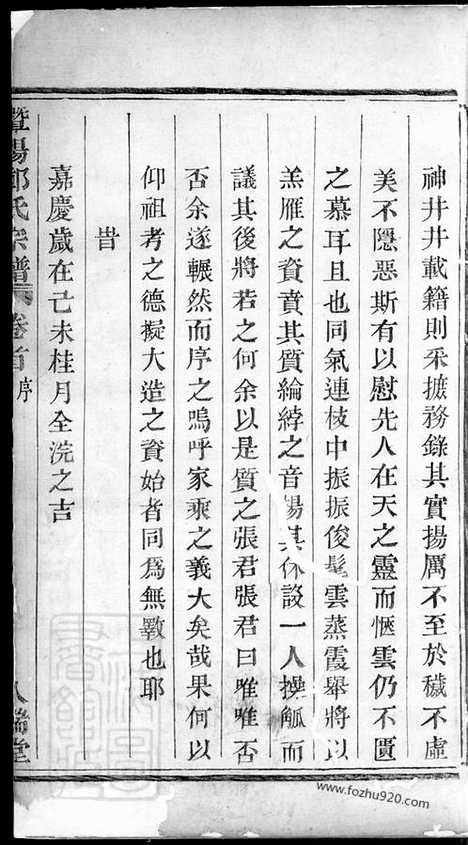 神井井載籍則采摭務錄其實揚厲不至於穢不虛
美不隱惡斯有以慰先人在天之靈而愜雲仍不匱
之慕耳且也同氣連枝中振振俊髦雲蒸霞舉將以
羔雁之資賁其質綸綍之音揚其休設一人操觚而
議其後將若之何余以是質之張君張君曰唯唯否
否余遂輾然而序之嗚呼家乘之義大矣哉果何以
仰祖考之德擬大造之資始者同為無斁也耶
旹
嘉慶歲在己未桂月全浣之吉
暨陽 氏宗譜 卷首 序
堂
www.fozhu920.com